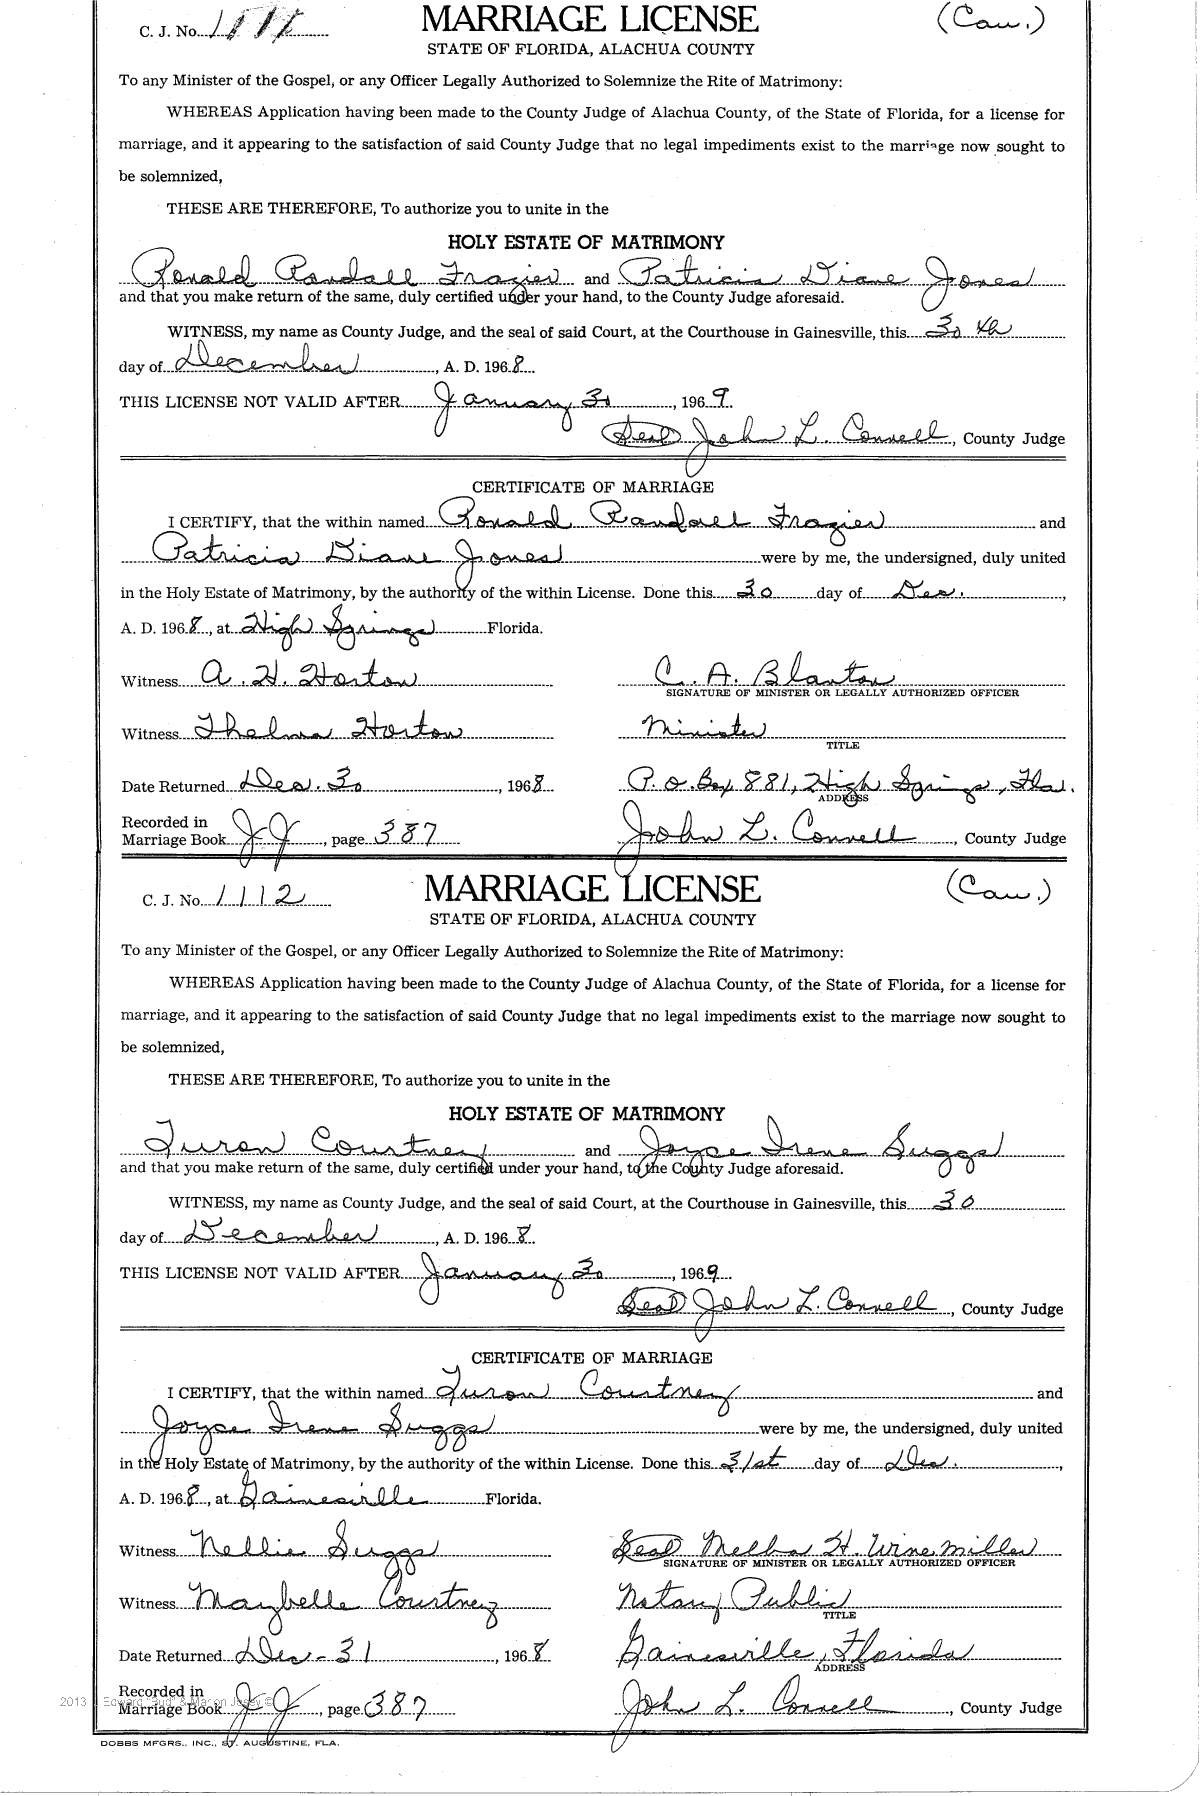 C. J. No. 1111 MARRIAGE LICENSE (Cau.)
STATE OF FLORIDA, ALACHUA COUNTY
To any Minister of the Gospel, or any Officer Legally Authorized to Solemnize the Rite of Matrimony:
WHEREAS Application having been made to the County Judge of Alachua County, of the State of Florida, for a license for
marriage, and it appearing to the satisfaction of said County Judge that no legal impediments exist to the marriage now sought to
be solemnized,
THESE ARE THEREFORE, To authorize you to unite in the
HOLY ESTATE OF MATRIMONY
Ronald Randall Frazier and Patricia Diane Jones
and that you make return of the same, duly certified under your hand, to the County Judge aforesaid.
WITNESS, my name as County Judge, and the seal of said Court, at the Courthouse in Gainesville, this 30th
day of December, A. D. 1968
THIS LICENSE NOT VALID AFTER January 30, 1969
Seal John L. Connell, County Judge
CERTIFICATE OF MARRIAGE
I CERTIFY, that the within named Ronald Randall Frazier and
Patricia Diane Jones were by me, the undersigned, duly united
in the Holy Estate of Matrimony, by the authority of the within License. Done this 30 day of Dec.,
A. D. 1968, at High Springs Florida.
Witness A. H. Horton C. A. Blanton
SIGNATURE OF MINISTER OR LEGALLY AUTHORIZED OFFICER
Witness Thelma Horton Minister
TITLE
Date Returned Dec. 30, 1968 P.O. Box 881, High Springs, Fla.
ADDRESS
Recorded in
Marriage Book JJ, page 387 John L. Connell, County Judge
C. J. No. 1112 MARRIAGE LICENSE (Cau.)
STATE OF FLORIDA, ALACHUA COUNTY
To any Minister of the Gospel, or any Officer Legally Authorized to Solemnize the Rite of Matrimony:
WHEREAS Application having been made to the County Judge of Alachua County, of the State of Florida, for a license for
marriage, and it appearing to the satisfaction of said County Judge that no legal impediments exist to the marriage now sought to
be solemnized,
THESE ARE THEREFORE, To authorize you to unite in the
HOLY ESTATE OF MATRIMONY
Turon Courtney and Joyce Irene Suggs
and that you make return of the same, duly certified under your hand, to the County Judge aforesaid.
WITNESS, my name as County Judge, and the seal of said Court, at the Courthouse in Gainesville, this 30
day of December, A. D. 1968
THIS LICENSE NOT VALID AFTER January 30, 1969
Seal John L. Connell, County Judge
CERTIFICATE OF MARRIAGE
I CERTIFY, that the within named Turon Courtney and
Joyce Irene Suggs were by me, the undersigned, duly united
in the Holy Estate of Matrimony, by the authority of the within License. Done this 31st day of Dec.,
A. D. 1968, at Gainesville Florida.
Witness Nellie Suggs Seal Melba H. Winemiller
SIGNATURE OF MINISTER OR LEGALLY AUTHORIZED OFFICER
Witness Maybelle Courtney Notary Public
TITLE
Date Returned Dec - 31, 1968 Gainesville, Florida
ADDRESS
Recorded in
2013 Edward "Bud" & Marion Jessy ©
Marriage Book JJ, page 387 John L. Connell, County Judge
DOBBS MFGRS., INC., ST. AUGUSTINE, FLA.